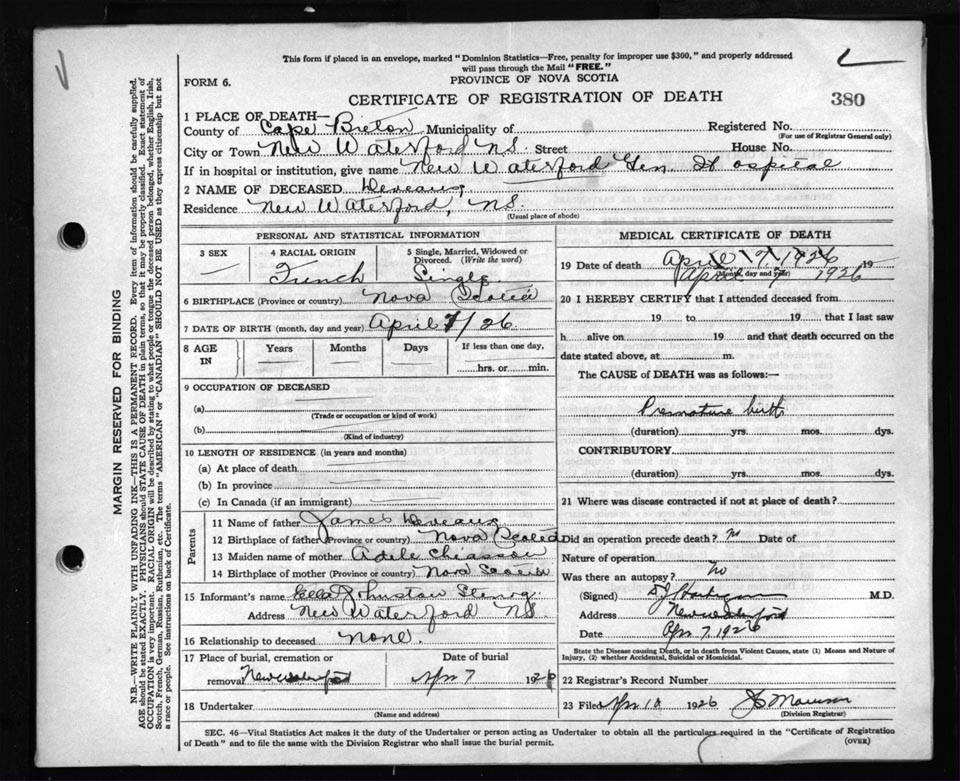 This form if placed in an envelope, marked "Dominion Statistics—Free, penalty for improper use $300," and properly addressed
will pass through the Mail "FREE."
FORM 6.
PROVINCE OF NOVA SCOTIA
CERTIFICATE OF REGISTRATION OF DEATH
380
1 PLACE OF DEATH—
County of Cape Breton Municipality of Registered No.
(For use of Registrar General only)
City or Town New Waterford NS. Street House No.
If in hospital or institution, give name New Waterford Gen Hospital
2 NAME OF DECEASED Deveaux
Residence New Waterford, NS.
(Usual place of abode)
PERSONAL AND STATISTICAL INFORMATION
3 SEX 4 RACIAL ORIGIN 5 Single, Married, Widowed or
Divorced. (Write the word)
French Single
6 BIRTHPLACE (Province or country) Nova Scotia
7 DATE OF BIRTH (month, day and year) April 7/26.
8 AGE IN Years Months Days If less than one day,
hrs. or min.
9 OCCUPATION OF DECEASED
(a)
(Trade or occupation or kind of work)
(b)
(Kind of industry)
10 LENGTH OF RESIDENCE (in years and months)
(a) At place of death
(b) In province
(c) In Canada (if an immigrant)
Parents
11 Name of father James Deveaux
12 Birthplace of father (Province or country) Nova Scotia
13 Maiden name of mother Adele Chiasson
14 Birthplace of mother (Province or country) Nova Scotia
15 Informant's name Ella Johnston
Address New Waterford NS.
16 Relationship to deceased none.
17 Place of burial, cremation or Date of burial
removal New Waterford Apr 7 1926
18 Undertaker
(Name and address)
MEDICAL CERTIFICATE OF DEATH
19 Date of death April 7/1926 19
(Month, day and year)
April 7 1926
20 I HEREBY CERTIFY that I attended deceased from
19 to 19 that I last saw
h alive on 19 and that death occurred on the
date stated above, at m.
The CAUSE of DEATH was as follows:—
Premature birth
(duration) yrs. mos. dys.
CONTRIBUTORY
(duration) yrs. mos. dys.
21 Where was disease contracted if not at place of death?
Did an operation precede death? no Date of
Nature of operation
Was there an autopsy? no
(Signed) M.D.
Address New Waterford
Date Apr 7, 1926
State the Disease causing Death, or in death from Violent Causes, state (1) Means and Nature of
Injury, (2) whether Accidental, Suicidal or Homicidal.
22 Registrar's Record Number
23 Filed Apr 10 1926
(Division Registrar)
SEC. 46—Vital Statistics Act makes it the duty of the Undertaker or person acting as Undertaker to obtain all the particulars required in the "Certificate of Registration
of Death" and to file the same with the Division Registrar who shall issue the burial permit.
(OVER)
MARGIN RESERVED FOR BINDING
N.B.—WRITE PLAINLY WITH UNFADING INK—THIS IS A PERMANENT RECORD. Every item of information should be carefully supplied.
AGE should be stated EXACTLY. PHYSICIANS should STATE CAUSE OF DEATH in plain terms, so that it may be properly classified. Exact statement of
OCCUPATION is very important. RACIAL ORIGIN will be described by stating to what people or tongue the deceased person belonged, whether English, Irish,
Scotch, French, German, Russian, Ruthenian, etc. The terms "AMERICAN" or "CANADIAN" SHOULD NOT BE USED as they express citizenship but not
a race or people. See instructions on back of Certificate.